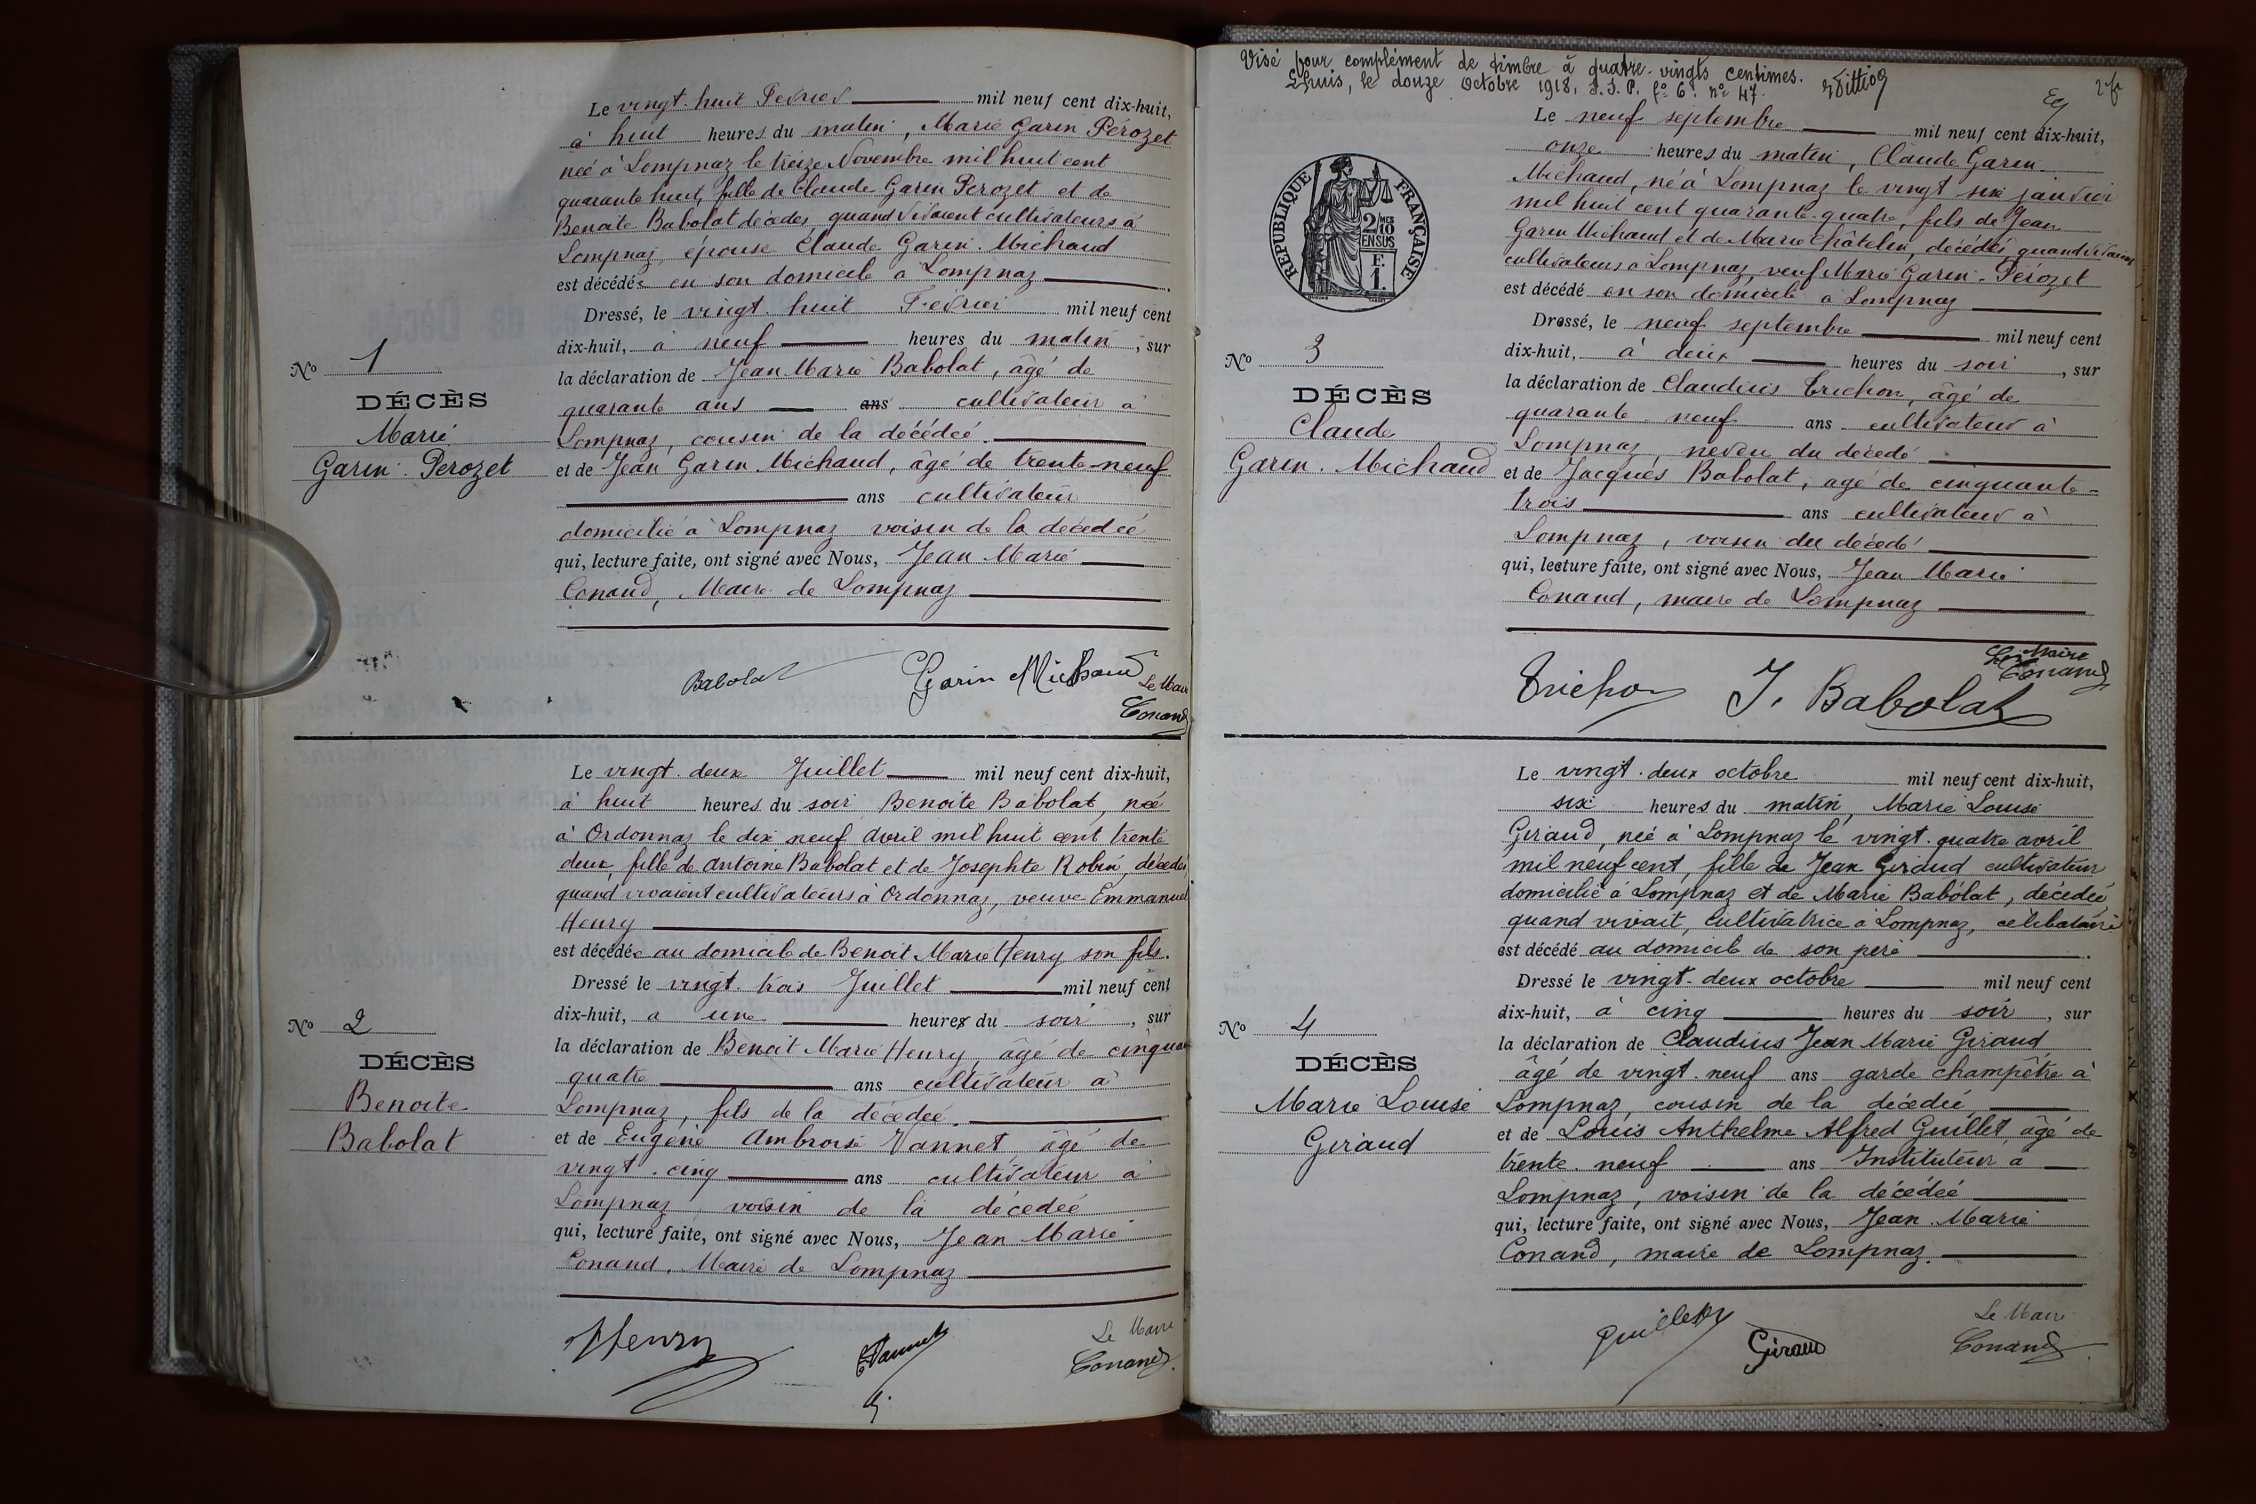 Le vingt-huit Février mil neuf cent dix-huit,
à huit heures du matin, Marie Garin Pérozet
née à Lompnaz le treize Novembre mil huit cent
quarante huit, fille de Claude Garin Perozet et de
Benoite Babolat décédés, quand vivaient cultivateurs à
Lompnaz, épouse Claude Garin-Michaud
est décédée en son domicile à Lompnaz
Dressé, le vingt-huit Février mil neuf cent
dix-huit, à neuf heures du matin, sur
la déclaration de Jean Marie Babolat, âgé de
quarante ans ans cultivateur à
Lompnaz, cousin de la décédée.
et de Jean Garin-Michaud, âgé de trente-neuf
ans cultivateur
domicilié à Lompnaz voisin de la décédée
qui, lecture faite, ont signé avec Nous, Jean Marie
Conand, Maire de Lompnaz
No 1
DÉCÈS
Marie
Garin-Perozet
Babolat Garin Michaud Le Maire
Conand
Le vingt-deux Juillet mil neuf cent dix-huit,
à huit heures du soir Benoite Babolat, née
à Ordonnaz le dix neuf Avril mil huit cent trente
deux, fille de Antoine Babolat et de Josephte Robin, décédés
quand vivaient cultivateurs à Ordonnaz, veuve Emmanuel
Henry
est décédée au domicile de Benoit Marie Henry son fils.
Dressé le vingt-trois Juillet mil neuf cent
dix-huit, à une heures du soir, sur
la déclaration de Benoit Marie Henry, âgé de cinquante
quatre ans cultivateur à
Lompnaz, fils de la décédée.
et de Eugène Ambroise Vannet, âgé de
vingt-cinq ans cultivateur à
Lompnaz, voisin de la décédée
qui, lecture faite, ont signé avec Nous, Jean Marie
Conand, Maire de Lompnaz
No 2
DÉCÈS
Benoite
Babolat
Henry E Vannet Le Maire
Conand
Visé pour complément de timbre à quatre-vingts centimes.
Lhuis, le douze Octobre 1918. fo 6. no 47.
RÉPUBLIQUE FRANÇAISE
2 MES
10
EN SUS
F.
1.
Le neuf septembre mil neuf cent dix-huit,
onze heures du matin, Claude Garin
Michaud, né à Lompnaz le vingt six janvier
mil huit cent quarante-quatre, fils de Jean
Garin Michaud et de Marie Châtelin, décédés, quand vivaient
cultivateurs à Lompnaz, veuf Marie Garin-Pérozet
est décédé en son domicile à Lompnaz
Dressé, le neuf septembre mil neuf cent
dix-huit, à deux heures du soir, sur
la déclaration de Claudius Trichon, âgé de
quarante-neuf ans cultivateur à
Lompnaz, neveu du décédé
et de Jacques Babolat, âgé de cinquante-
trois ans cultivateur à
Lompnaz, voisin du décédé
qui, lecture faite, ont signé avec Nous, Jean Marie
Conand, maire de Lompnaz
No 3
DÉCÈS
Claude
Garin-Michaud
Le Maire
Conand
Trichon J. Babolat
Le vingt-deux octobre mil neuf cent dix-huit,
six heures du matin, Marie Louise
Giraud, née à Lompnaz le vingt-quatre avril
mil neuf cent, fille de Jean Giraud cultivateur
domicilié à Lompnaz et de Marie Babolat, décédée,
quand vivait, cultivatrice à Lompnaz, célibataire
est décédé au domicile de son père
Dressé le vingt-deux octobre mil neuf cent
dix-huit, à cinq heures du soir, sur
la déclaration de Claudius Jean Marie Giraud
âgé de vingt-neuf ans garde champêtre à
Lompnaz, cousin de la décédée
et de Louis Anthelme Alfred Guillet, âgé de
trente-neuf ans Instituteur à
Lompnaz, voisin de la décédée
qui, lecture faite, ont signé avec Nous, Jean-Marie
Conand, maire de Lompnaz.
No 4
DÉCÈS
Marie Louise
Giraud
Guillet Giraud Le Maire
Conand